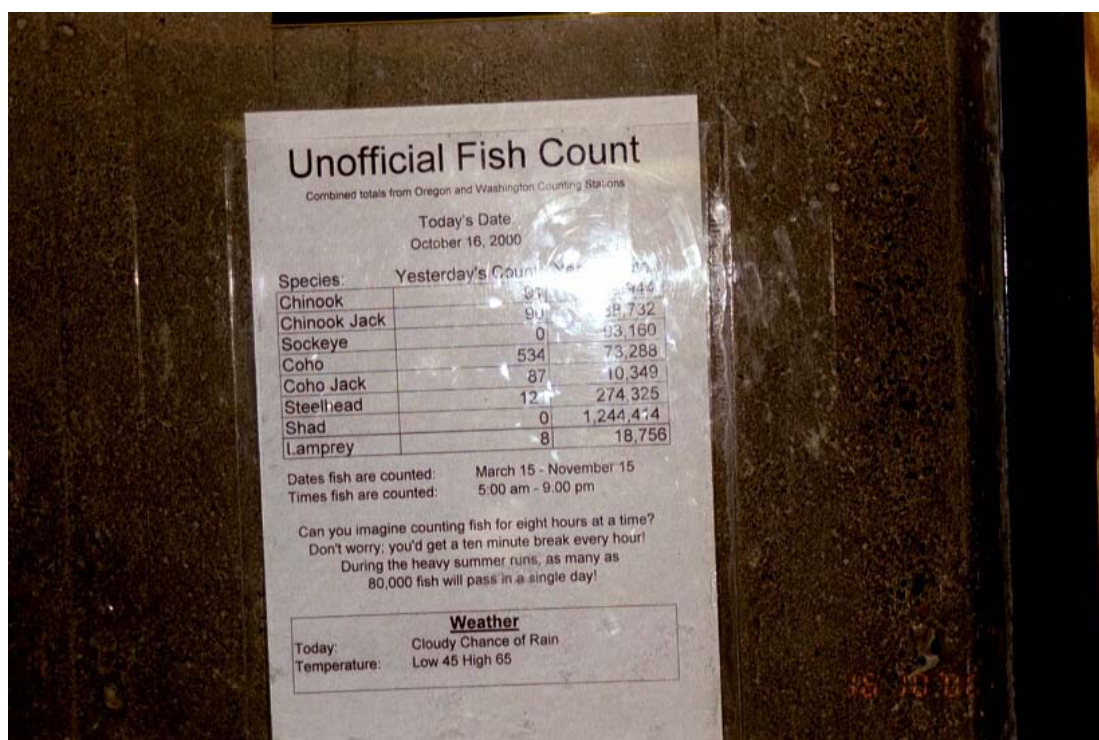 Unofficial Fish Count
Combined totals from Oregon and Washington Counting Stations
Today's Date
October 16, 2000
Species: Yesterday's Count
Chinook
Chinook Jack 90
Sockeye 0 93,160
Coho 534 73,288
Coho Jack 87 10,349
Steelhead 274,325
Shad 0 1,244,414
Lamprey 8 18,756
Dates fish are counted: March 15 - November 15
Times fish are counted: 5:00 am - 9:00 pm
Can you imagine counting fish for eight hours at a time?
Don't worry; you'd get a ten minute break every hour!
During the heavy summer runs, as many as
80,000 fish will pass in a single day!
Weather
Today: Cloudy Chance of Rain
Temperature: Low 45 High 65